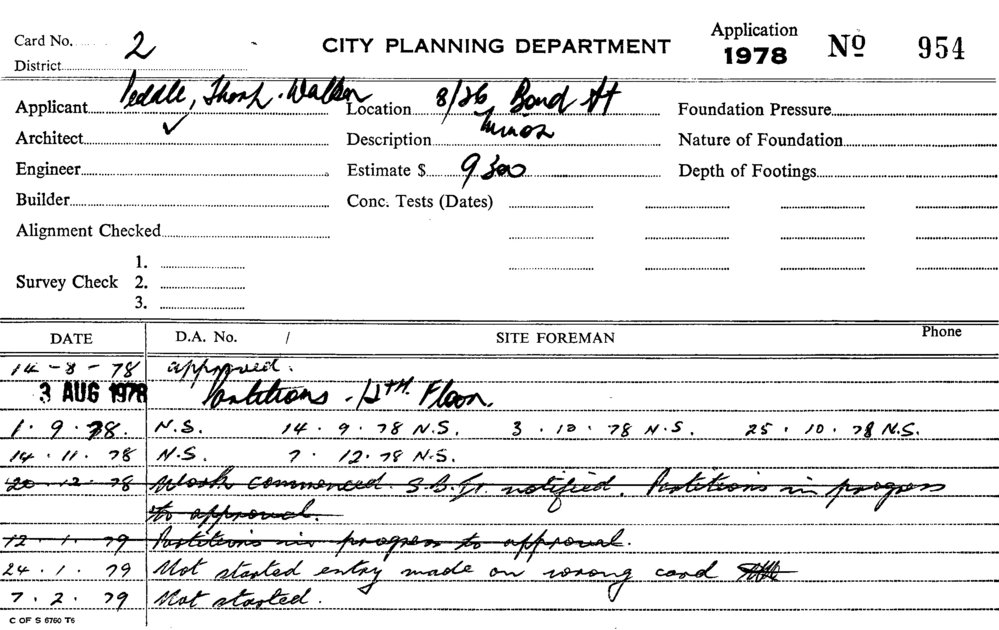 Card No. 2
CITY PLANNING DEPARTMENT
Application
1978 Nº 954
District
Applicant Peddle, Thorp. Walker Location 8/26 Bond St Foundation Pressure
Architect ✓ Description Minor Nature of Foundation
Engineer Estimate $ 9300 Depth of Footings
Builder Conc. Tests (Dates)
Alignment Checked
Survey Check 1.
2.
3.
DATE D.A. No. / SITE FOREMAN Phone
14-8-78 approved.
3 AUG 1978 Partitions - 12TH. Floor.
1.9.78. N.S. 14.9.78 N.S. 3.10.78 N.S. 25.10.78 N.S.
14.11.78 N.S. 7.12.78 N.S.
20.12.78 Work commenced. S.B.I. notified. Partitions in progress
to approval.
12.1.79 Partitions in progress to approval.
24.1.79 Not started entry made on wrong card
7.2.79 Not started.
C OF S 6760 T6